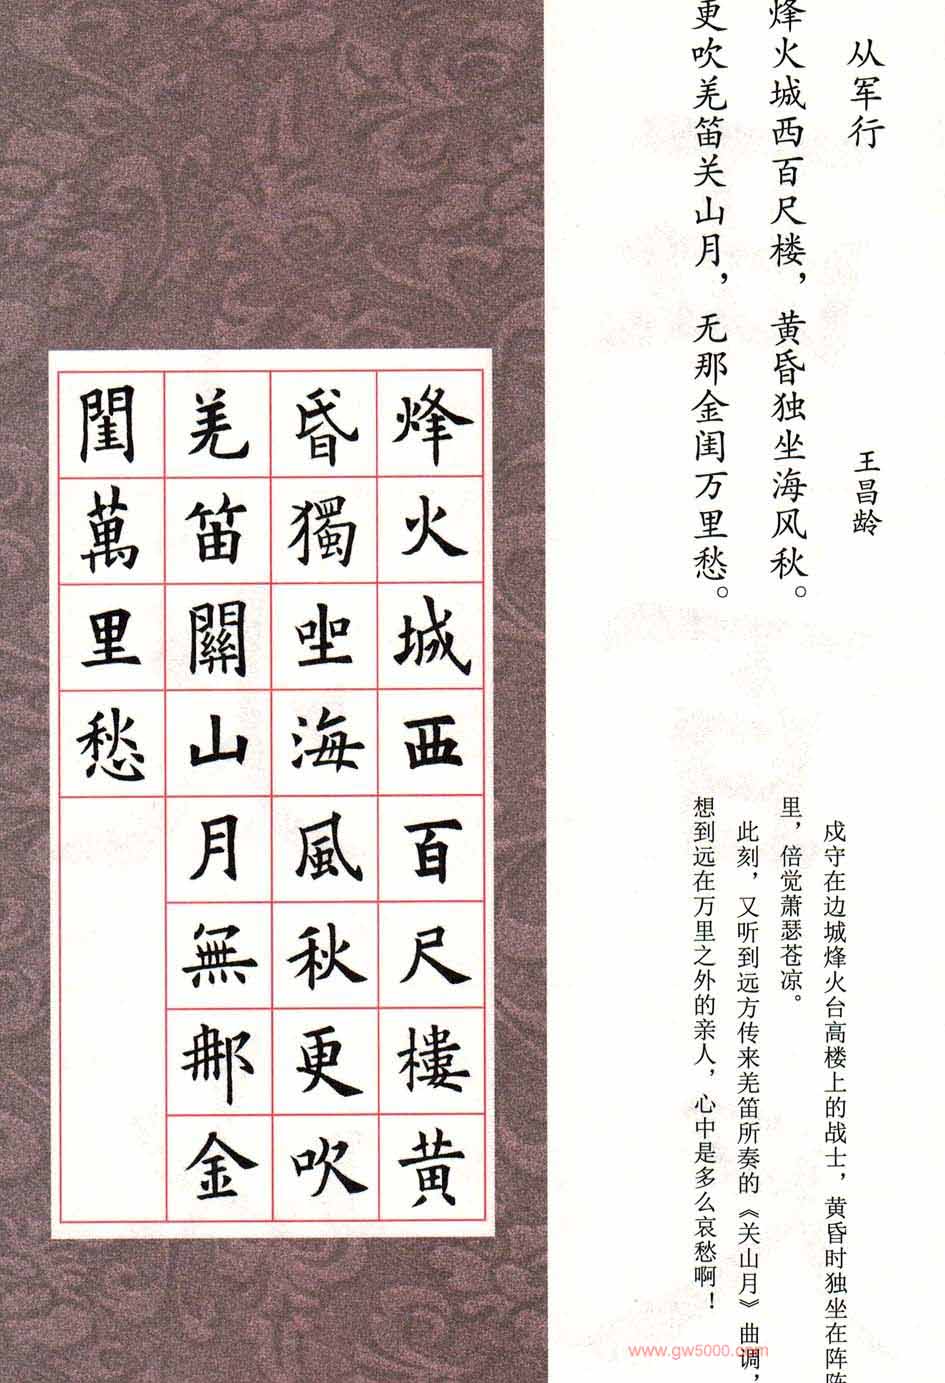 从军行
王昌龄
烽火城西百尺楼，黄昏独坐海风秋。
更吹羌笛关山月，无那金闺万里愁。
戍守在边城烽火台高楼上的战士，黄昏时独坐在阵阵
里，倍觉萧瑟苍凉。
此刻，又听到远方传来羌笛所奏的《关山月》曲调，
想到远在万里之外的亲人，心中是多么哀愁啊！
烽火城西百尺樓黄
昏獨坐海風秋更吹
羌笛關山月無那金
閨萬里愁
www.gw5000.com